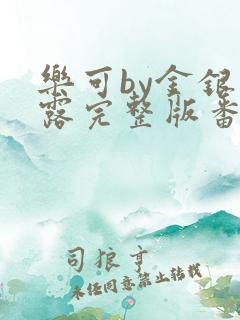 樂可by金銀
露完整版番
司狼亨
未经同意禁止转载